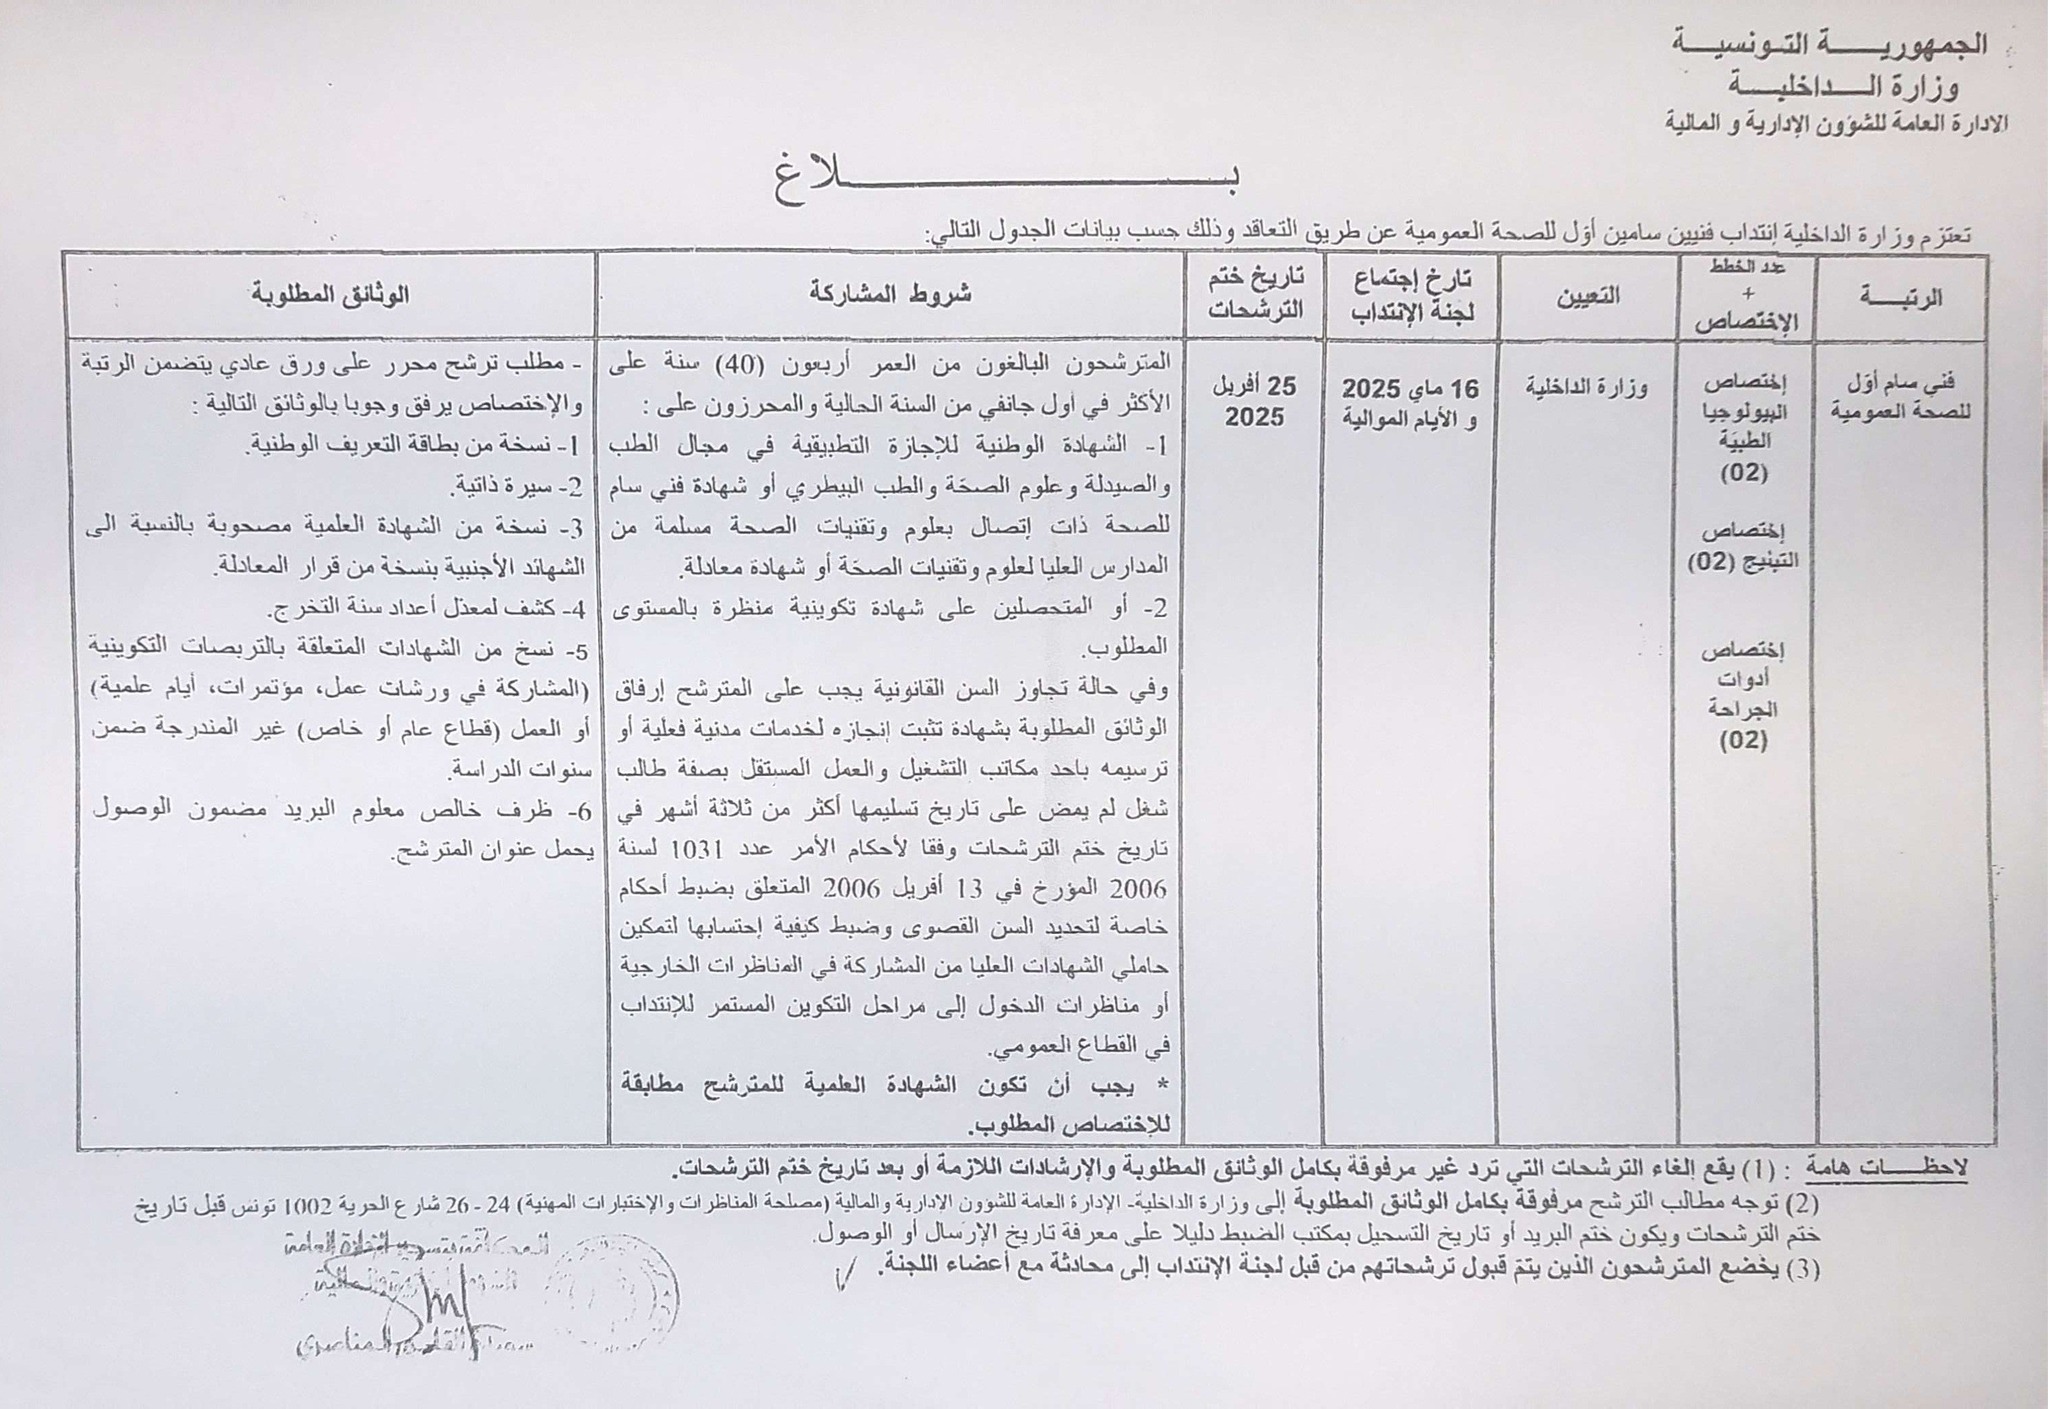 الجمهورية التونسية
وزارة الداخلية
الادارة العامة للشؤون الإدارية و المالية
بلاغ
تعتزم وزارة الداخلية إنتداب فنيين سامين أوّل للصحة العمومية عن طريق التعاقد وذلك حسب بيانات الجدول التالي:
الرتبة
عدد الخطط
+
الإختصاص
التعيين
تارخ إجتماع
لجنة الإنتداب
تاريخ ختم
الترشحات
شروط المشاركة
الوثائق المطلوبة
فني سام أوّل
للصحة العمومية
إختصاص
البيولوجيا
الطبيّة
(02)
إختصاص
التبنيج (02)
إختصاص
أدوات
الجراحة
(02)
وزارة الداخلية
16 ماي 2025
و الأيام الموالية
25 أفريل
2025
المترشحون البالغون من العمر أربعون (40) سنة على
الأكثر في أول جانفي من السنة الحالية والمحرزون على :
1- الشهادة الوطنية للإجازة التطبيقية في مجال الطب
والصيدلة وعلوم الصحّة والطب البيطري أو شهادة فني سام
للصحة ذات إتصال بعلوم وتقنيات الصحة مسلمة من
المدارس العليا لعلوم وتقنيات الصحّة أو شهادة معادلة.
2- أو المتحصلين على شهادة تكوينية منظرة بالمستوى
المطلوب.
وفي حالة تجاوز السن القانونية يجب على المترشح إرفاق
الوثائق المطلوبة بشهادة تثبت إنجازه لخدمات مدنية فعلية أو
ترسيمه باحد مكاتب التشغيل والعمل المستقل بصفة طالب
شغل لم يمض على تاريخ تسليمها أكثر من ثلاثة أشهر في
تاريخ ختم الترشحات وفقا لأحكام الأمر عدد 1031 لسنة
2006 المؤرخ في 13 أفريل 2006 المتعلق بضبط أحكام
خاصة لتحديد السن القصوى وضبط كيفية إحتسابها لتمكين
حاملي الشهادات العليا من المشاركة في المناظرات الخارجية
أو مناظرات الدخول إلى مراحل التكوين المستمر للإنتداب
في القطاع العمومي.
* يجب أن تكون الشهادة العلمية للمترشح مطابقة
للإختصاص المطلوب.
- مطلب ترشح محرر على ورق عادي يتضمن الرتبة
والإختصاص يرفق وجوبا بالوثائق التالية :
1- نسخة من بطاقة التعريف الوطنية.
2- سيرة ذاتية.
3- نسخة من الشهادة العلمية مصحوبة بالنسبة الى
الشهائد الأجنبية بنسخة من قرار المعادلة.
4- كشف لمعدّل أعداد سنة التخرج.
5- نسخ من الشهادات المتعلقة بالتربصات التكوينية
(المشاركة في ورشات عمل، مؤتمرات، أيام علمية)
أو العمل (قطاع عام أو خاص) غير المندرجة ضمن
سنوات الدراسة.
6- ظرف خالص معلوم البريد مضمون الوصول
يحمل عنوان المترشح.
لاحظات هامة : (1) يقع إلغاء الترشحات التي ترد غير مرفوقة بكامل الوثائق المطلوبة والإرشادات اللازمة أو بعد تاريخ ختم الترشحات.
(2) توجه مطالب الترشح مرفوقة بكامل الوثائق المطلوبة إلى وزارة الداخلية- الإدارة العامة للشؤون الإدارية والمالية (مصلحة المناظرات والإختبارات المهنية) 24 - 26 شارع الحرية 1002 تونس قبل تاريخ
ختم الترشحات ويكون ختم البريد أو تاريخ التسجيل بمكتب الضبط دليلا على معرفة تاريخ الإرسال أو الوصول.
(3) يخضع المترشحون الذين يتمّ قبول ترشحاتهم من قبل لجنة الإنتداب إلى محادثة مع أعضاء اللجنة.
المناصري